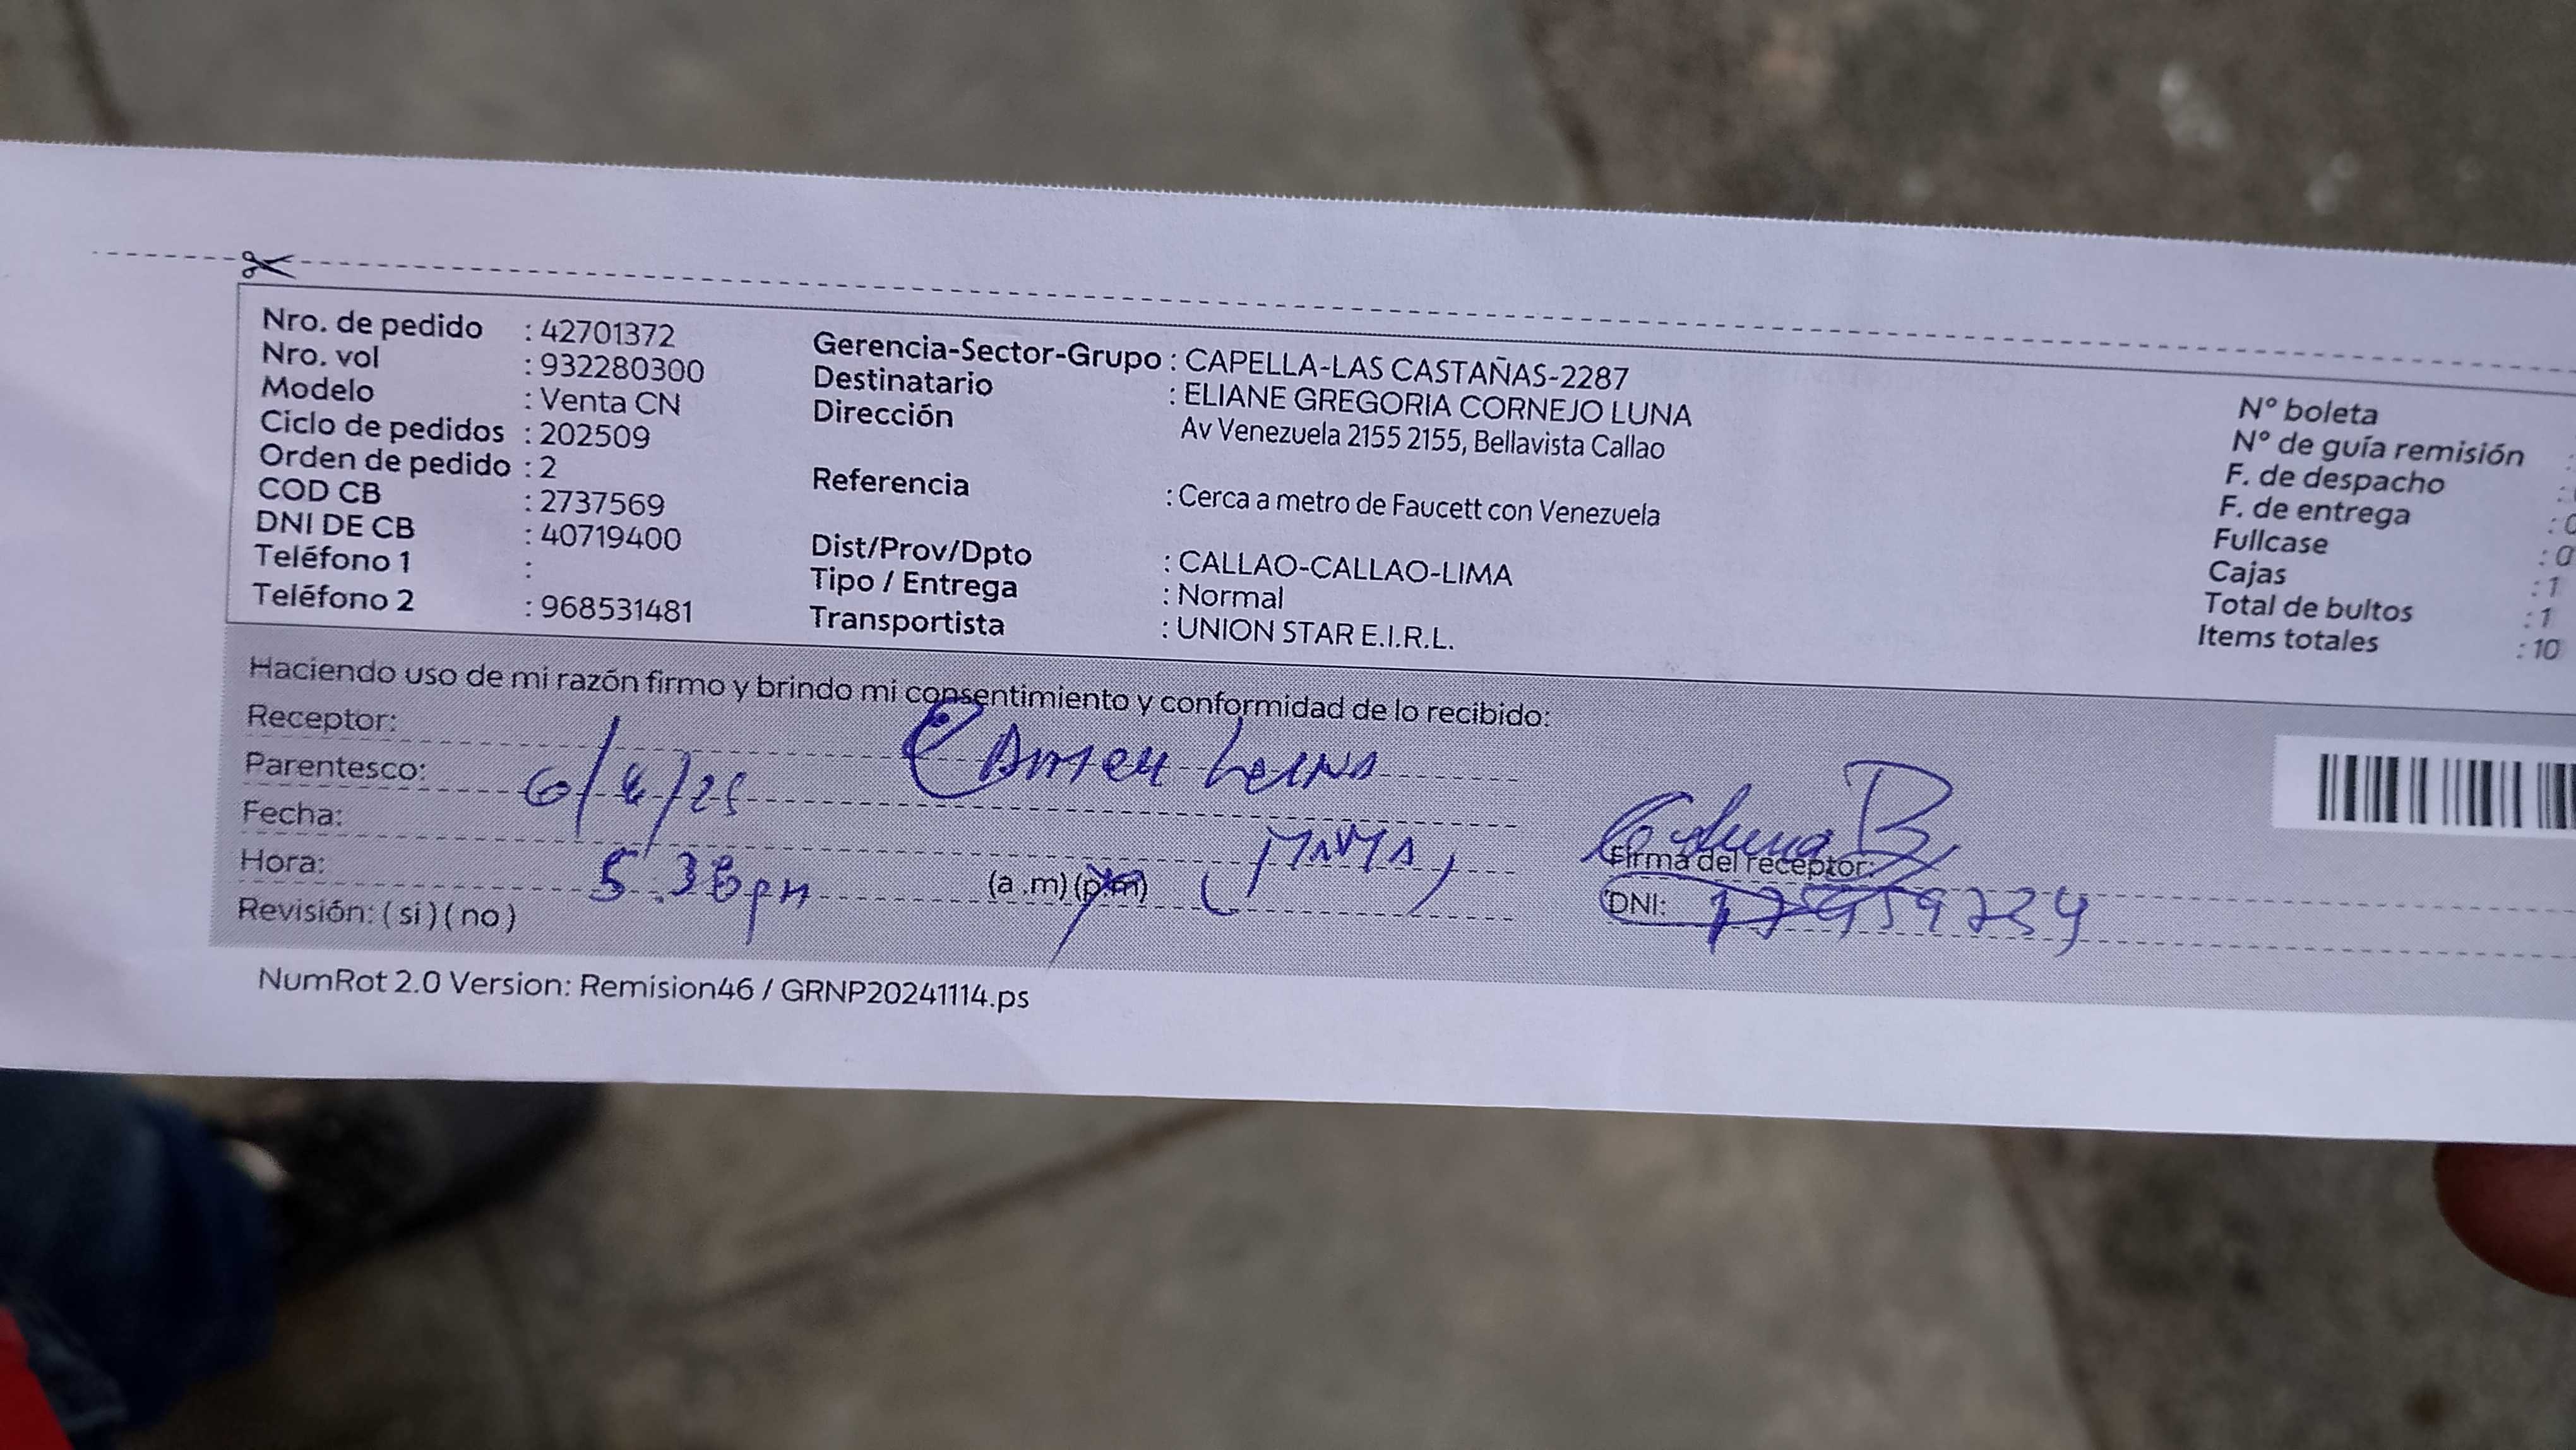 Nro. de pedido : 42701372
Nro. vol : 932280300
Modelo : Venta CN
Ciclo de pedidos : 202509
Orden de pedido : 2
COD CB : 2737569
DNI DE CB : 40719400
Teléfono 1 :
Teléfono 2 : 968531481
Gerencia-Sector-Grupo : CAPELLA-LAS CASTAÑAS-2287
Destinatario : ELIANE GREGORIA CORNEJO LUNA
Dirección
Av Venezuela 2155 2155, Bellavista Callao
Referencia : Cerca a metro de Faucett con Venezuela
Dist/Prov/Dpto : CALLAO-CALLAO-LIMA
Tipo / Entrega : Normal
Transportista : UNION STAR E.I.R.L.
N° boleta
N° de guía remisión :
F. de despacho :
F. de entrega : 0
Fullcase : 0
Cajas : 1
Total de bultos : 1
Items totales : 10
Haciendo uso de mi razón firmo y brindo mi consentimiento y conformidad de lo recibido:
Receptor: Carmen Luna
Parentesco:
Fecha:
Hora: 5:38 pm (a.m) (p.m) (MAMA)
Revisión: ( si ) ( no )
Firma del receptor:
DNI:
NumRot 2.0 Version: Remision46 / GRNP20241114.ps